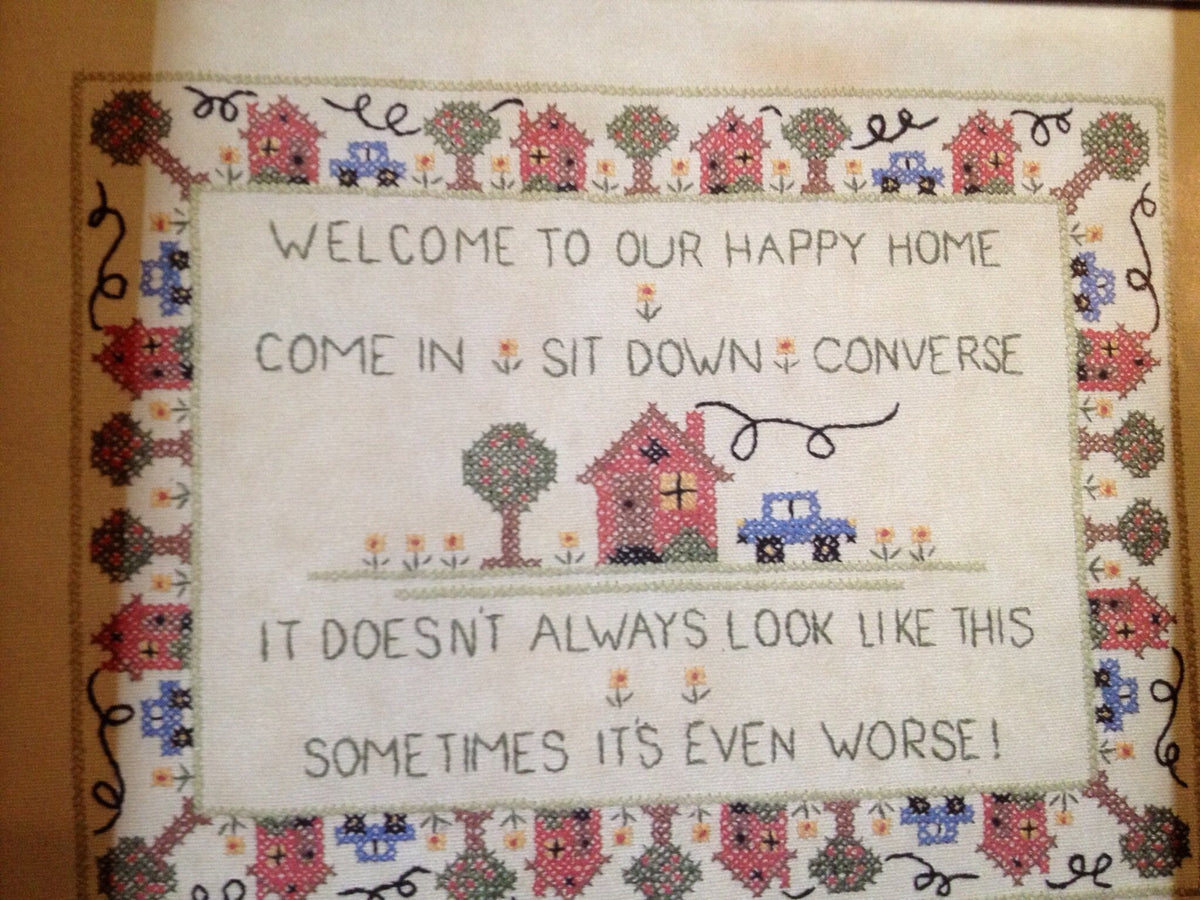 WELCOME TO OUR HAPPY HOME
COME IN SIT DOWN CONVERSE
IT DOESN'T ALWAYS LOOK LIKE THIS
SOMETIMES IT'S EVEN WORSE!